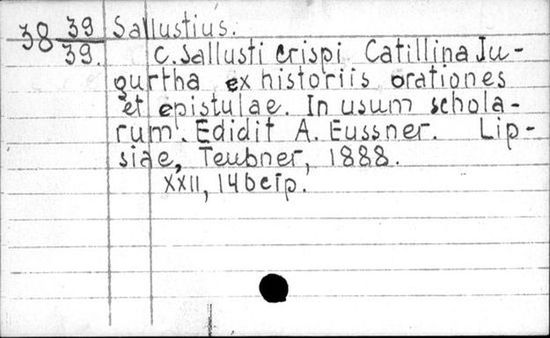 38 39/39. Sallustius.
C. Sallusti Crispi Catillina Ju-
gurtha ex historiis orationes
et epistulae. In usum schola-
rum. Edidit A. Eussner. Lip-
siae, Teubner, 1888.
XXII, 146 стр.